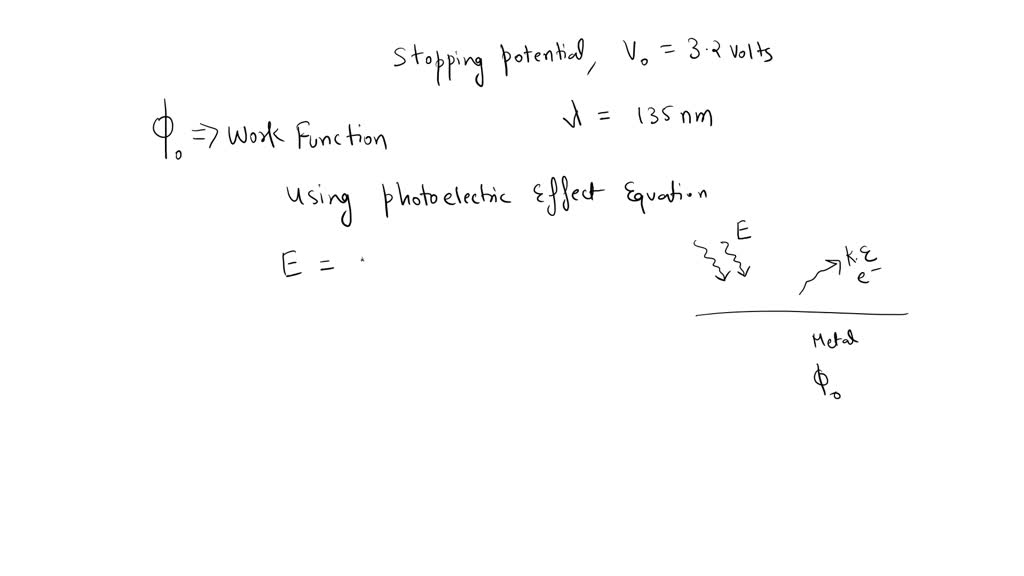 Stopping potential, V₀ = 3.2 volts
λ = 135 nm
ϕ₀ => Work Function
Using photoelectric Effect Equation
E =
E
K.E
e⁻
Metal
ϕ₀